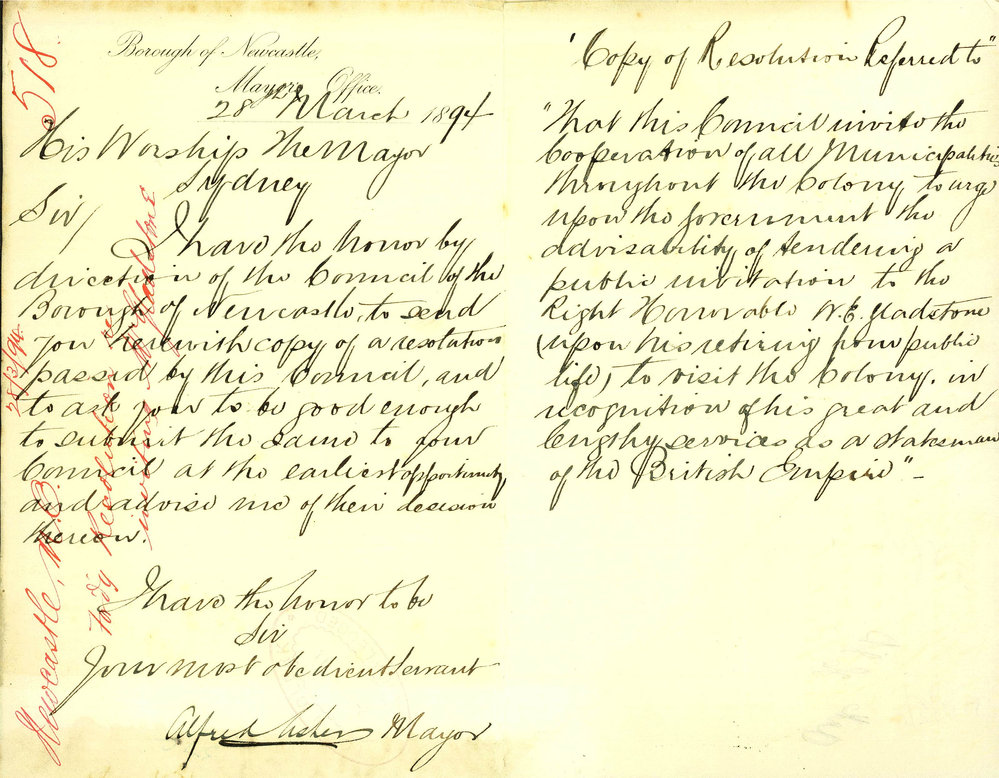 518
Borough of Newcastle,
Mayors Office.
28th March 1894
His Worship The Mayor
Sydney
Sir/
I have the honor by
direction of the Council of the
Borough of Newcastle, to send
you herewith copy of a resolution
passed by this Council, and
to ask you to be good enough
to submit the same to your
Council at the earliest opportunity
and advise me of their decision
thereon.
I have the honor to be
Sir
Your most obedient servant
Alfred Asher Mayor
Newcastle, M.C.
28/3/94.
Resolution re
inviting Mr Gladstone
"Copy of Resolution Referred to"
"That this Council invite the
Cooperation of all Municipalities
throughout the Colony, to urge
upon the Government the
advisability of tendering a
public invitation to the
Right Honorable W.E. Gladstone
(upon his retiring from public
life) to visit the Colony, in
recognition of his great and
lengthy services as a statesman
of the British Empire" -